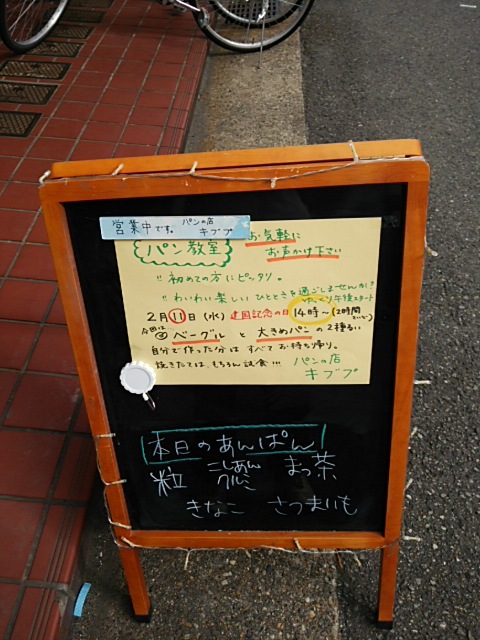 営業中です。 パンの店 キブプ
パン教室
お気軽に
お声かけ下さい
"初めての方にピッタリ。
"わいわい楽しいひとときを過ごしませんか?
ゆっくり午後スタート
2月11日(水) 建国記念の日 14時〜(2時間くらい)
今回は ベーグル と 大きめパン の2種るい
自分で作った分は すべてお持ち帰り。
焼きたては、もちろん試食…
パンの店
キブプ
本日のあんぱん
粒 こしあん まっ茶
きなこ さつまいも